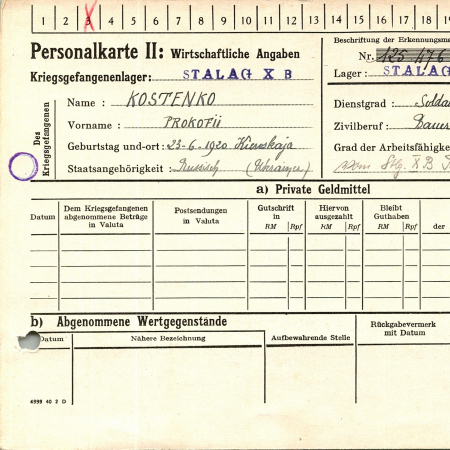 1 2 3 4 5 6 7 8 9 10 11 12 13 14 15 16 17 18 19
Personalkarte II: Wirtschaftliche Angaben
Beschriftung der Erkennungsm
Nr. 125 476
Kriegsgefangenenlager: STALAG X B
Lager: STALAG
Des Kriegsgefangenen
Name: KOSTENKO
Dienstgrad: Soldat
Vorname: PROKOFII
Zivilberuf: Bauer
Geburtstag und-ort: 23-6.1920 Kiewskaja
Grad der Arbeitsfähigke
Staatsangehörigkeit: Russisch (Ukrainer)
vom Stlg. X B
a) Private Geldmittel
Datum
Dem Kriegsgefangenen abgenommene Beträge in Valuta
Postsendungen in Valuta
Gutschrift in
RM Rpf
Hiervon ausgezahlt
RM Rpf
Bleibt Guthaben
RM Rpf
der
b) Abgenommene Wertgegenstände
Datum
Nähere Bezeichnung
Aufbewahrende Stelle
Rückgabevermerk mit Datum
4999 40 2 D